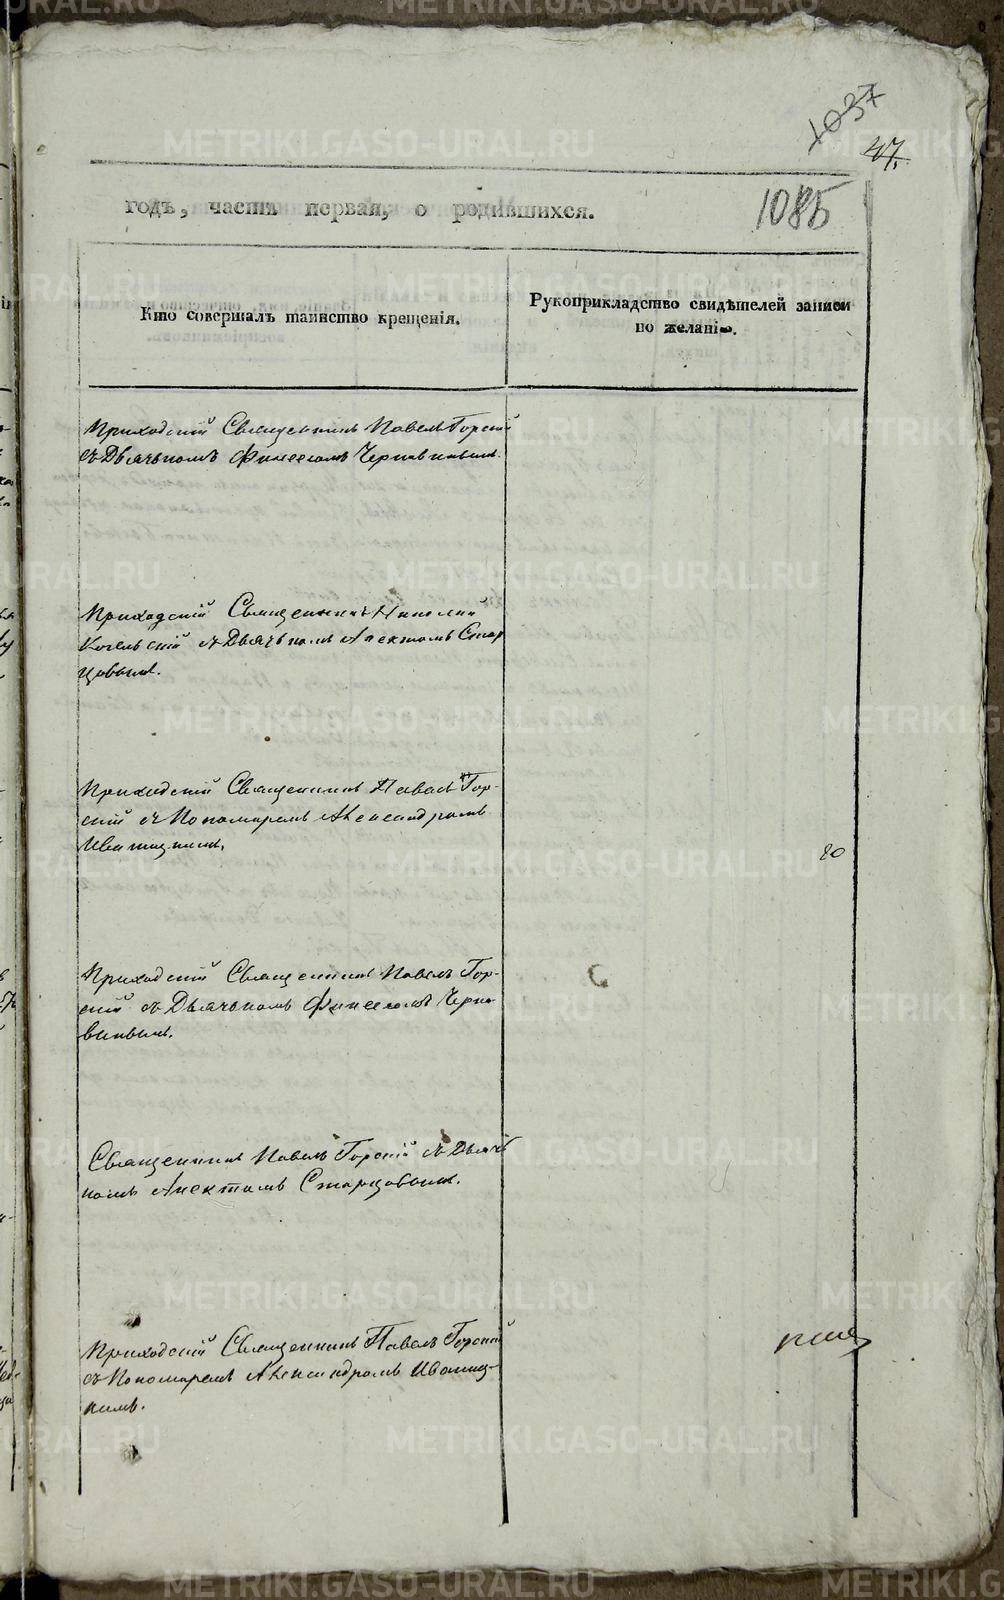 1037
47.
1085
годъ, часть первая, о родившихся.
Кто совершалъ таинство крещенія.
Рукоприкладство свидѣтелей записи
по желанію.
Приходскій Священникъ Павелъ Горскій
съ Дьячькомъ Финеесомъ Чернавинымъ.
Приходскій Священникъ Николай
съ Дьячькомъ Алектомъ Стар
цовымъ.
Приходскій Священникъ Павелъ Гор-
скій съ Пономаремъ Александромъ
Иваницкимъ.
Приходскій Священникъ Павелъ Гор-
скій съ Дьячькомъ Финеесомъ Черна
винымъ.
Священникъ Павелъ Горскій съ Дьячь
комъ Старцовымъ.
Приходскій Священникъ Павелъ Горскій
съ Пономаремъ Александромъ Иваниц-
кимъ.
METRIKI.GASO-URAL.RU